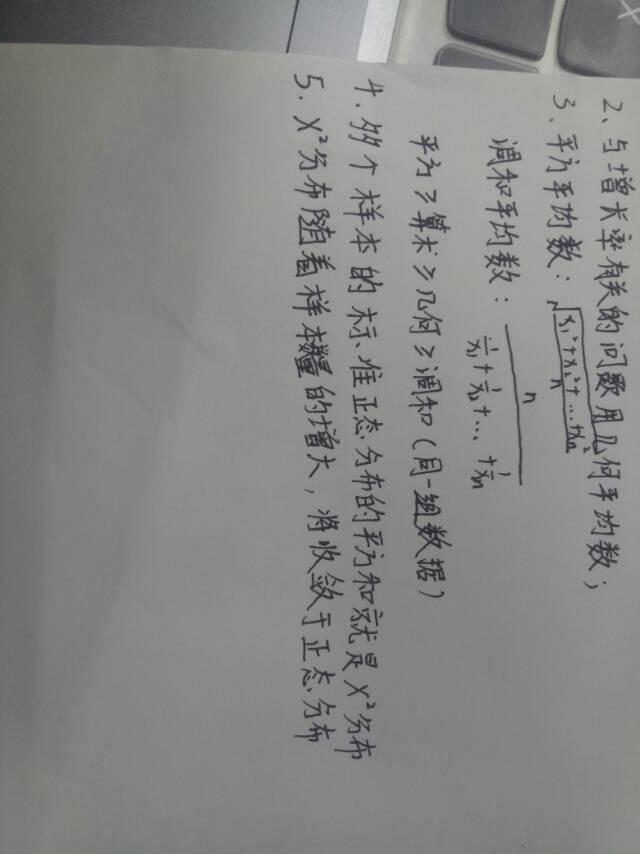 2、与增长率有关的问题用几何平均数;
3、平方平均数: √(x₁²+x₂²+...+xₙ²/n)
调和平均数: n/(1/x₁+1/x₂+...+1/xₙ)
平方≥算术≥几何≥调和(同一组数据)
4、多个样本的标准正态分布的平方和就是X²分布
5、X²分布随着样本数量的增大,将收敛于正态分布